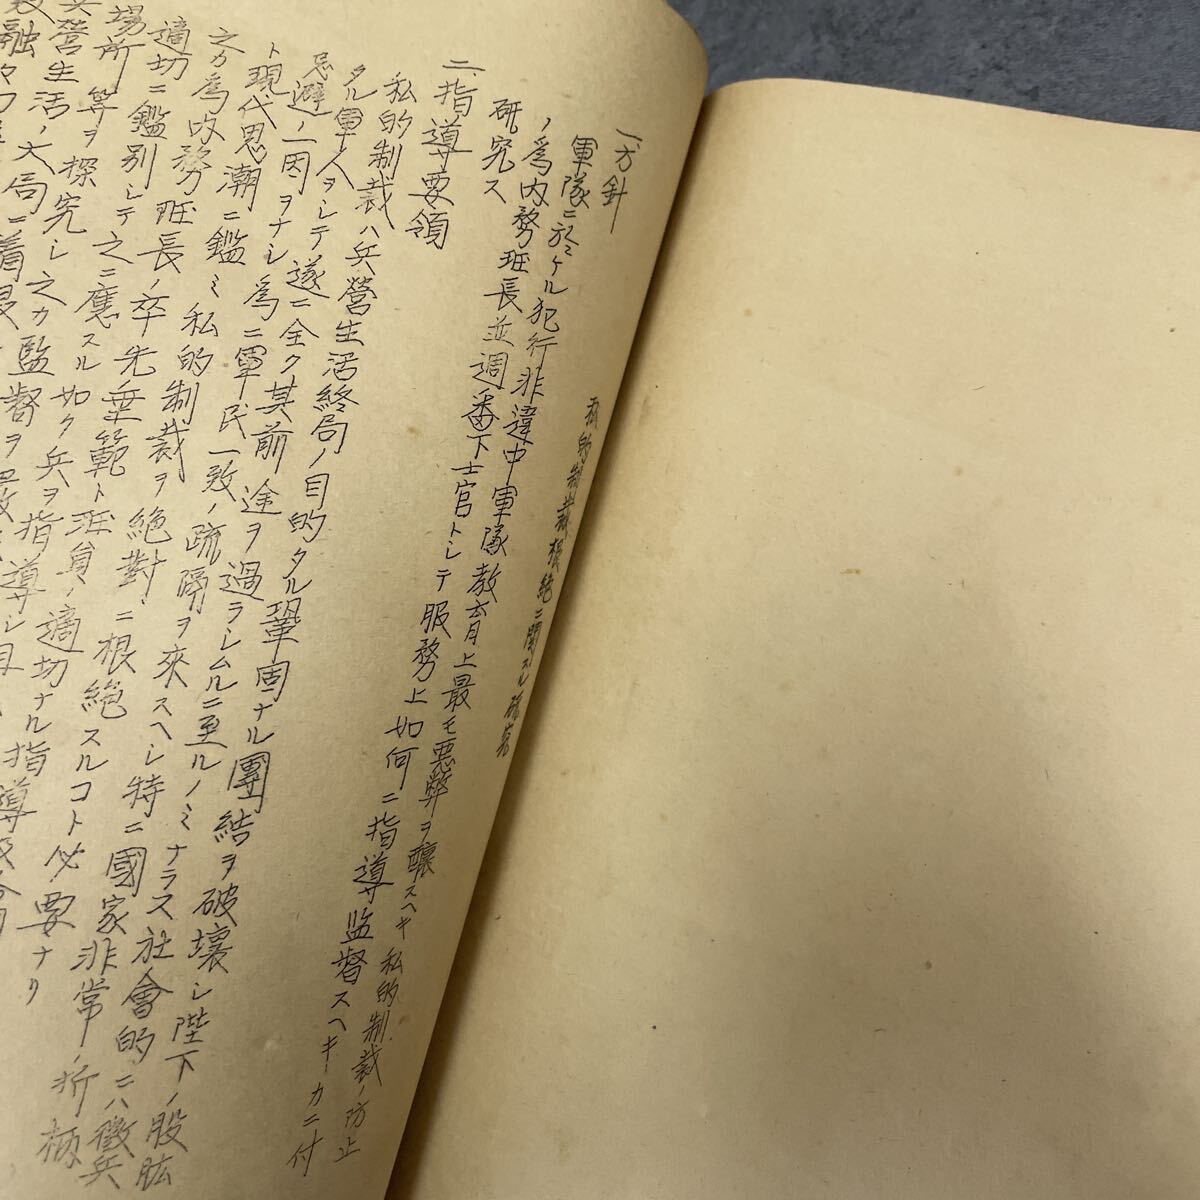 私的制裁根絶ニ関スル研究
一、方針
軍隊ニ於ケル犯行非違中軍隊教育上最モ悪弊ヲ醸スヘキ私的制裁ノ防止
ノ爲内務班長並週番下士官トシテ服務上如何ニ指導監督スヘキカニ付
研究ス
二、指導要領
私的制裁ハ兵營生活終局ノ目的タル鞏固ナル團結ヲ破壊シ陛下ノ股肱
タル軍人ヲシテ遂ニ全ク其前途ヲ過ラシムルニ至ルノミナラス社會的ニハ徴兵
忌避ノ一因ヲナシ爲ニ軍民一致ノ疏隔ヲ來スヘシ特ニ國家非常ノ折柄
現代思潮ニ鑑ミ私的制裁ヲ絶對ニ根絶スルコト必要ナリ
之カ爲内務班長ノ卒先垂範ト班員ノ適切ナル指導
適切ニ鑑別シテ之ニ應スル如ク兵ヲ指導シ
場所等ヲ探究シ之カ監督ヲ
兵營生活ノ大局ニ着眼
融